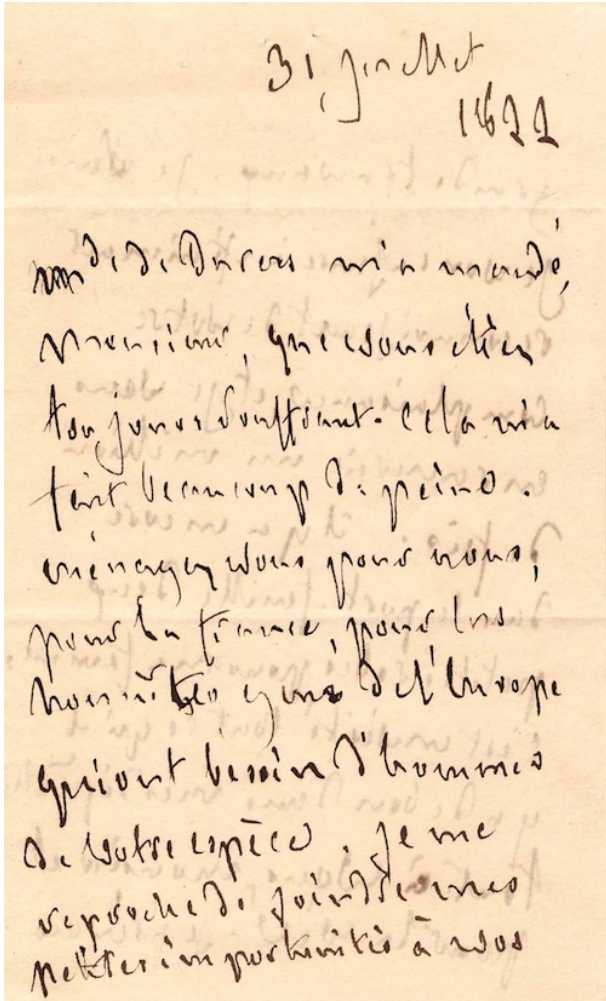 31 juillet
1822
Mde de Duras m'a mandé,
Monsieur, que vous étiez
toujours souffrant. Cela m'a
fait beaucoup de peine.
ménagez vous pour nous,
pour la france, pour les
honnêtes gens de l'Europe
qui ont besoin d'hommes
de votre espèce. Je me
reproche de joindre mes
petites importunités à vos